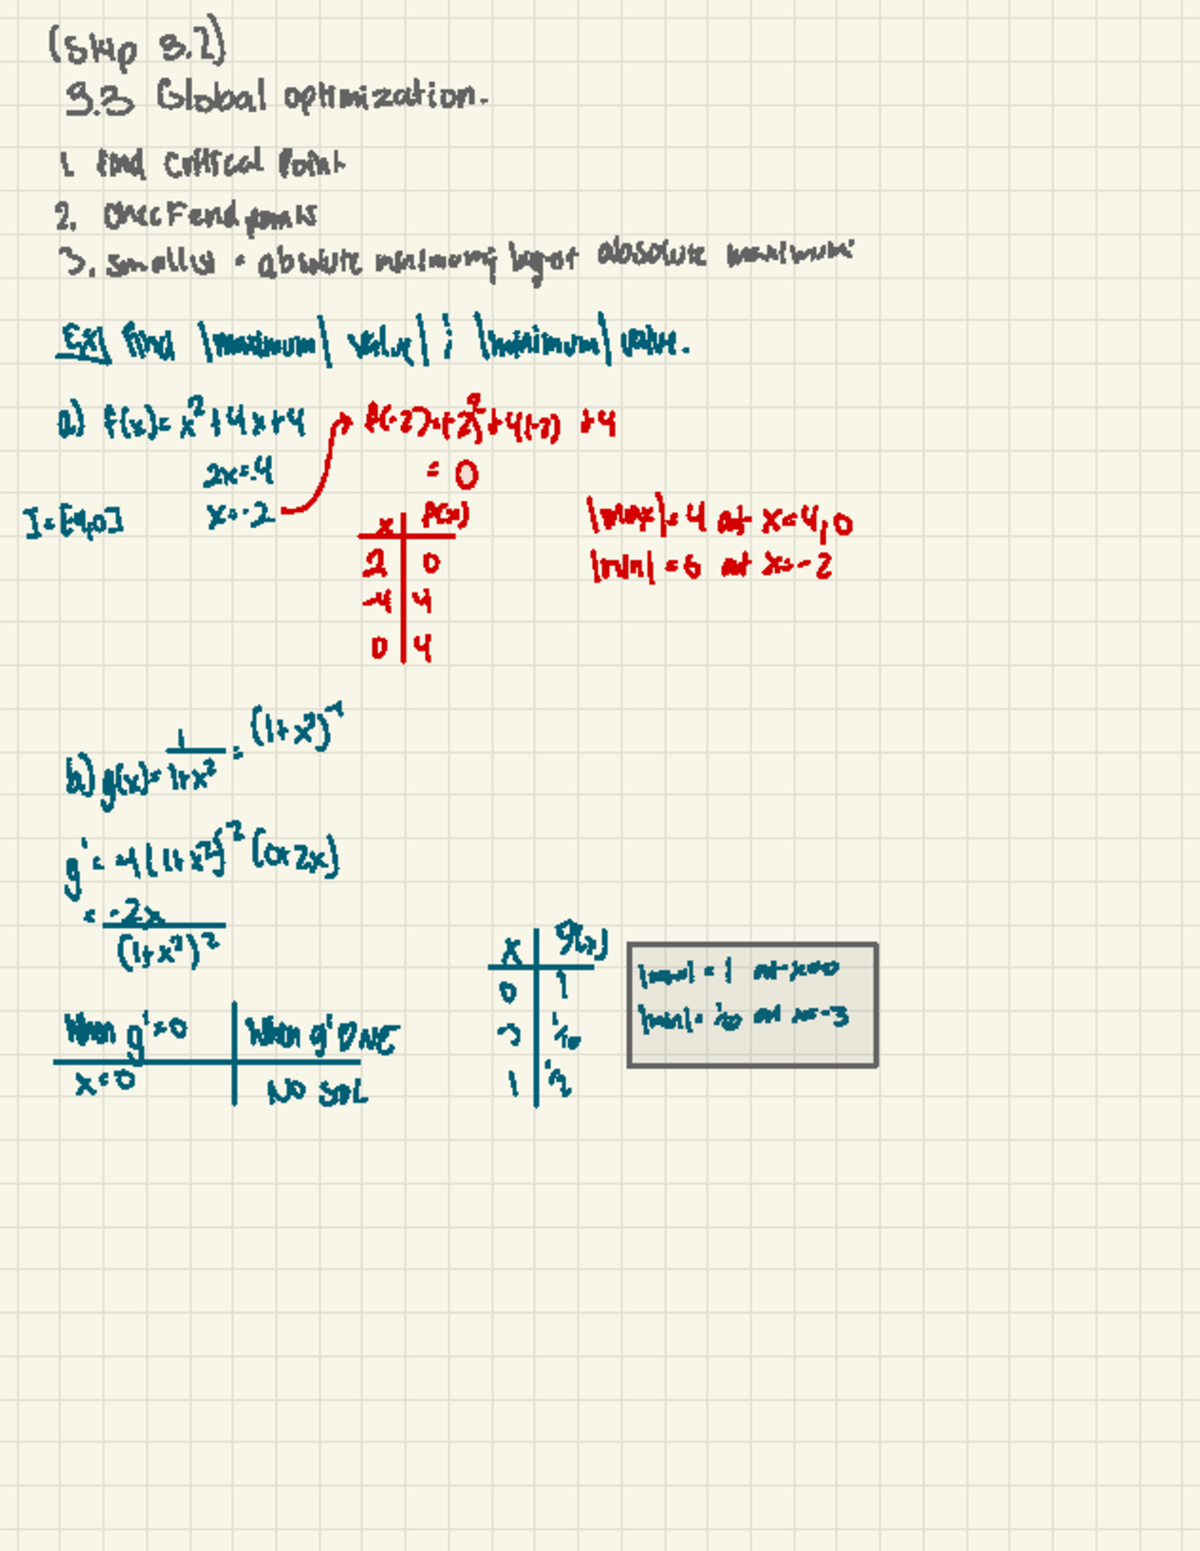 (Skip 3.2)
3.3 Global optimization.
1. find Critical Point
2. Check endpoints
3. smallest = absolute minimum; largest absolute maximum
Ex) Find |maximum| value| ; |minimum| value.
a) f(x)= x²+4x+4 → f(-2)=(-2)²+4(-2) +4
2x=-4 = 0
I=[-4,0] x=-2
x | f(x)
2 | 0
-4 | 4
0 | 4
|max|=4 at x=-4,0
|min| = 0 at x=-2
b) g(x)= 1/1+x² = (1+x²)⁻¹
g' = -1(1+x²)⁻² (0+2x)
= -2x/(1+x²)²
When g'=0 | When g' DNE
x=0 | No SOL
x | g(x)
0 | 1
-3 | 1/10
1 | 1/2
|max| = 1 at x=0
|min| = 1/10 at x=-3